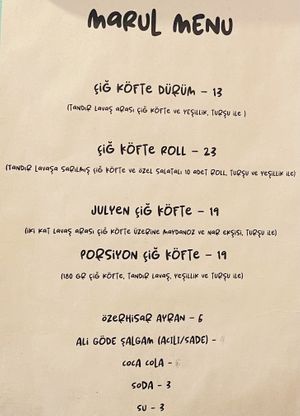 MARUL MENU
ÇİĞ KÖFTE DÜRÜM - 13
(TANDIR LAVAŞ ARASI ÇİĞ KÖFTE VE YEŞİLLİK, TURŞU İLE)
ÇİĞ KÖFTE ROLL - 23
(TANDIR LAVAŞA SARILMIŞ ÇİĞ KÖFTE VE ÖZEL SALATALI 10 ADET ROLL, TURŞU VE YEŞİLLİK İLE)
JULYEN ÇİĞ KÖFTE - 19
(İKİ KAT LAVAŞ ARASI ÇİĞ KÖFTE ÜZERİNE MAYDANOZ VE NAR EKŞİSİ, TURŞU İLE)
PORSİYON ÇİĞ KÖFTE - 19
(180 GR ÇİĞ KÖFTE, TANDIR LAVAŞ, YEŞİLLİK VE TURŞU İLE)
ÖZERHİSAR AYRAN - 6
ALİ GÖDE ŞALGAM (ACILI/SADE) -
COCA COLA -
SODA - 3
SU - 3